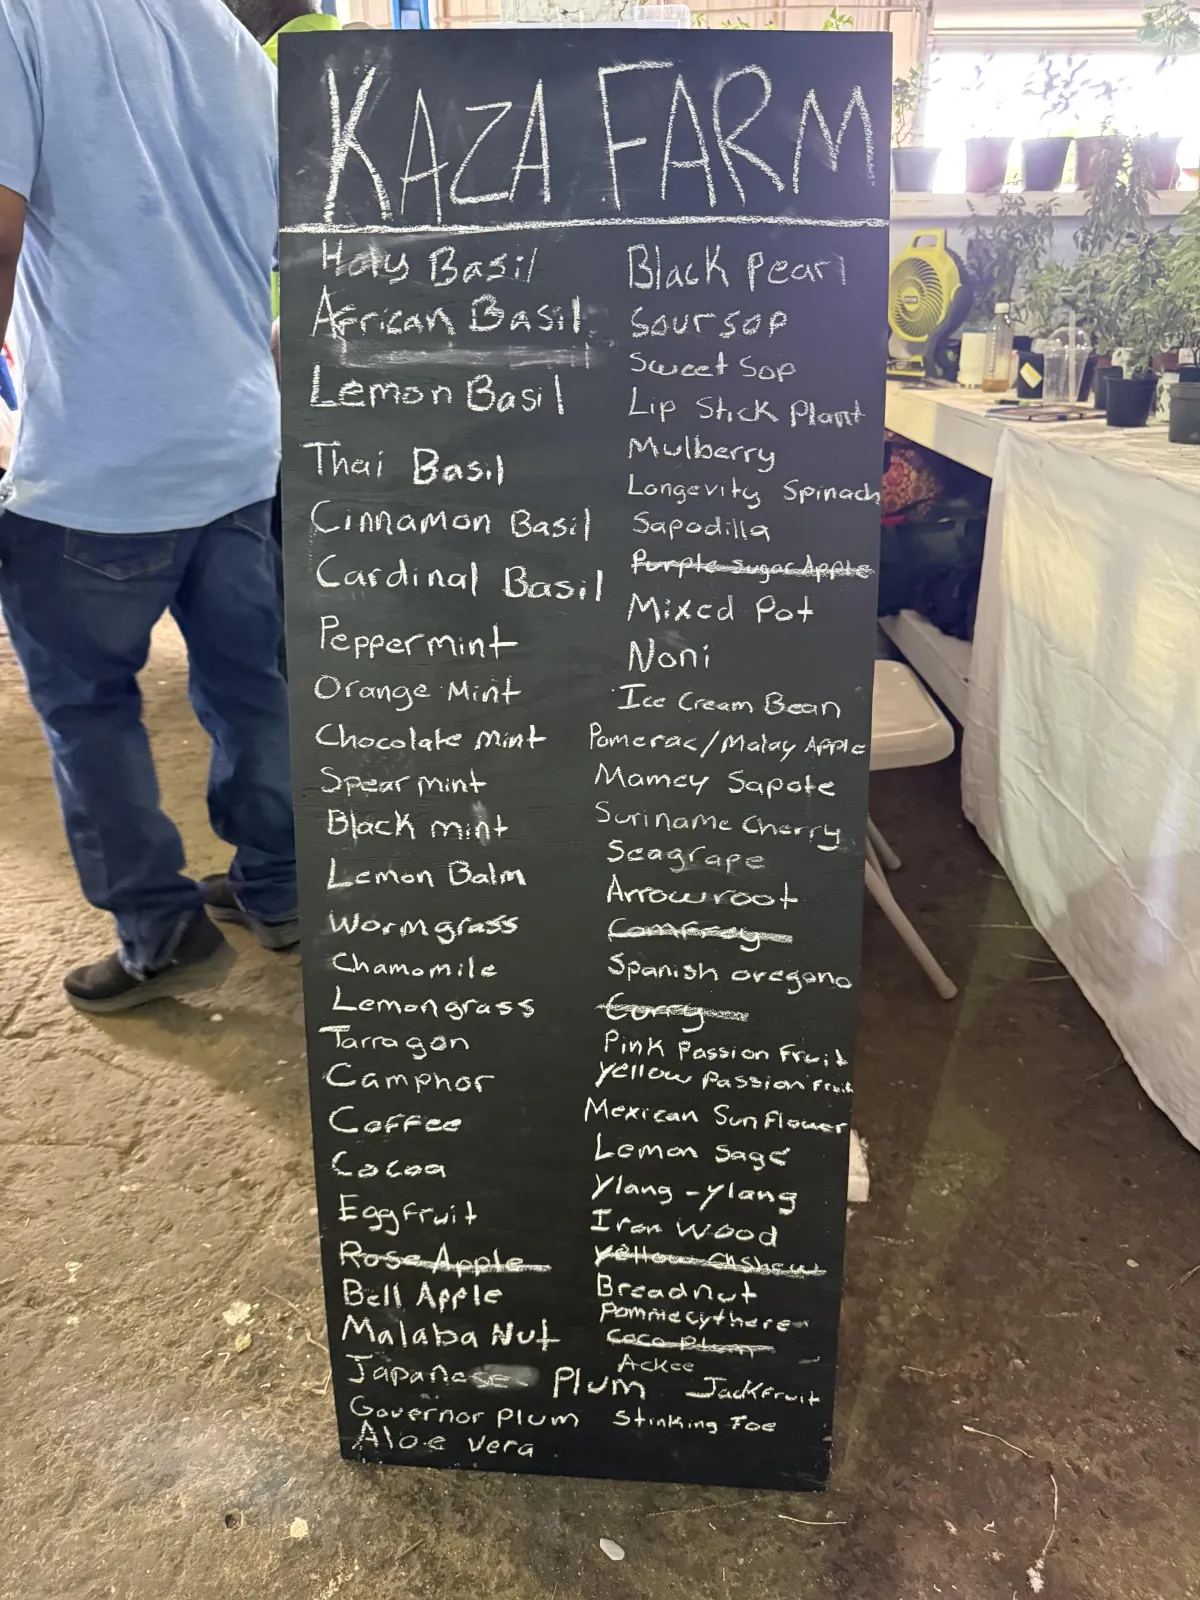 KAZA FARM
Holy Basil
African Basil
Lemon Basil
Thai Basil
Cinnamon Basil
Cardinal Basil
Peppermint
Orange Mint
Chocolate Mint
Spearmint
Black mint
Lemon Balm
Wormgrass
Chamomile
Lemongrass
Tarragon
Camphor
Coffee
Cocoa
Eggfruit
Rose Apple
Bell Apple
Malaba Nut
Japanese Plum
Governor Plum
Aloe vera
Black Pearl
Soursop
Sweet Sop
Lip Stick Plant
Mulberry
Longevity Spinach
Sapodilla
Purple Sugar Apple
Mixed Pot
Noni
Ice Cream Bean
Pomerac/Malay Apple
Mamey Sapote
Suriname Cherry
Seagrape
Arrowroot
Comfrey
Spanish oregano
Curry
Pink Passion Fruit
Yellow Passion Fruit
Mexican Sunflower
Lemon Sage
Ylang-ylang
Iron Wood
Yellow Cashew
Breadnut
Pommecythere
Coco Plum
Ackee
Jackfruit
Stinking Toe